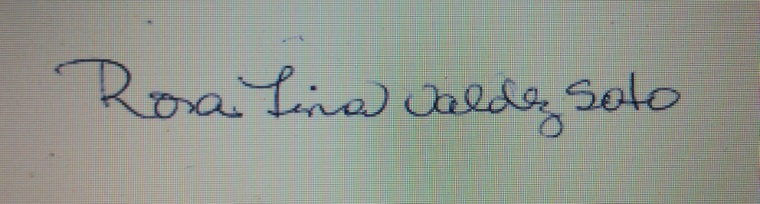 Rosa Lina Valdez Soto